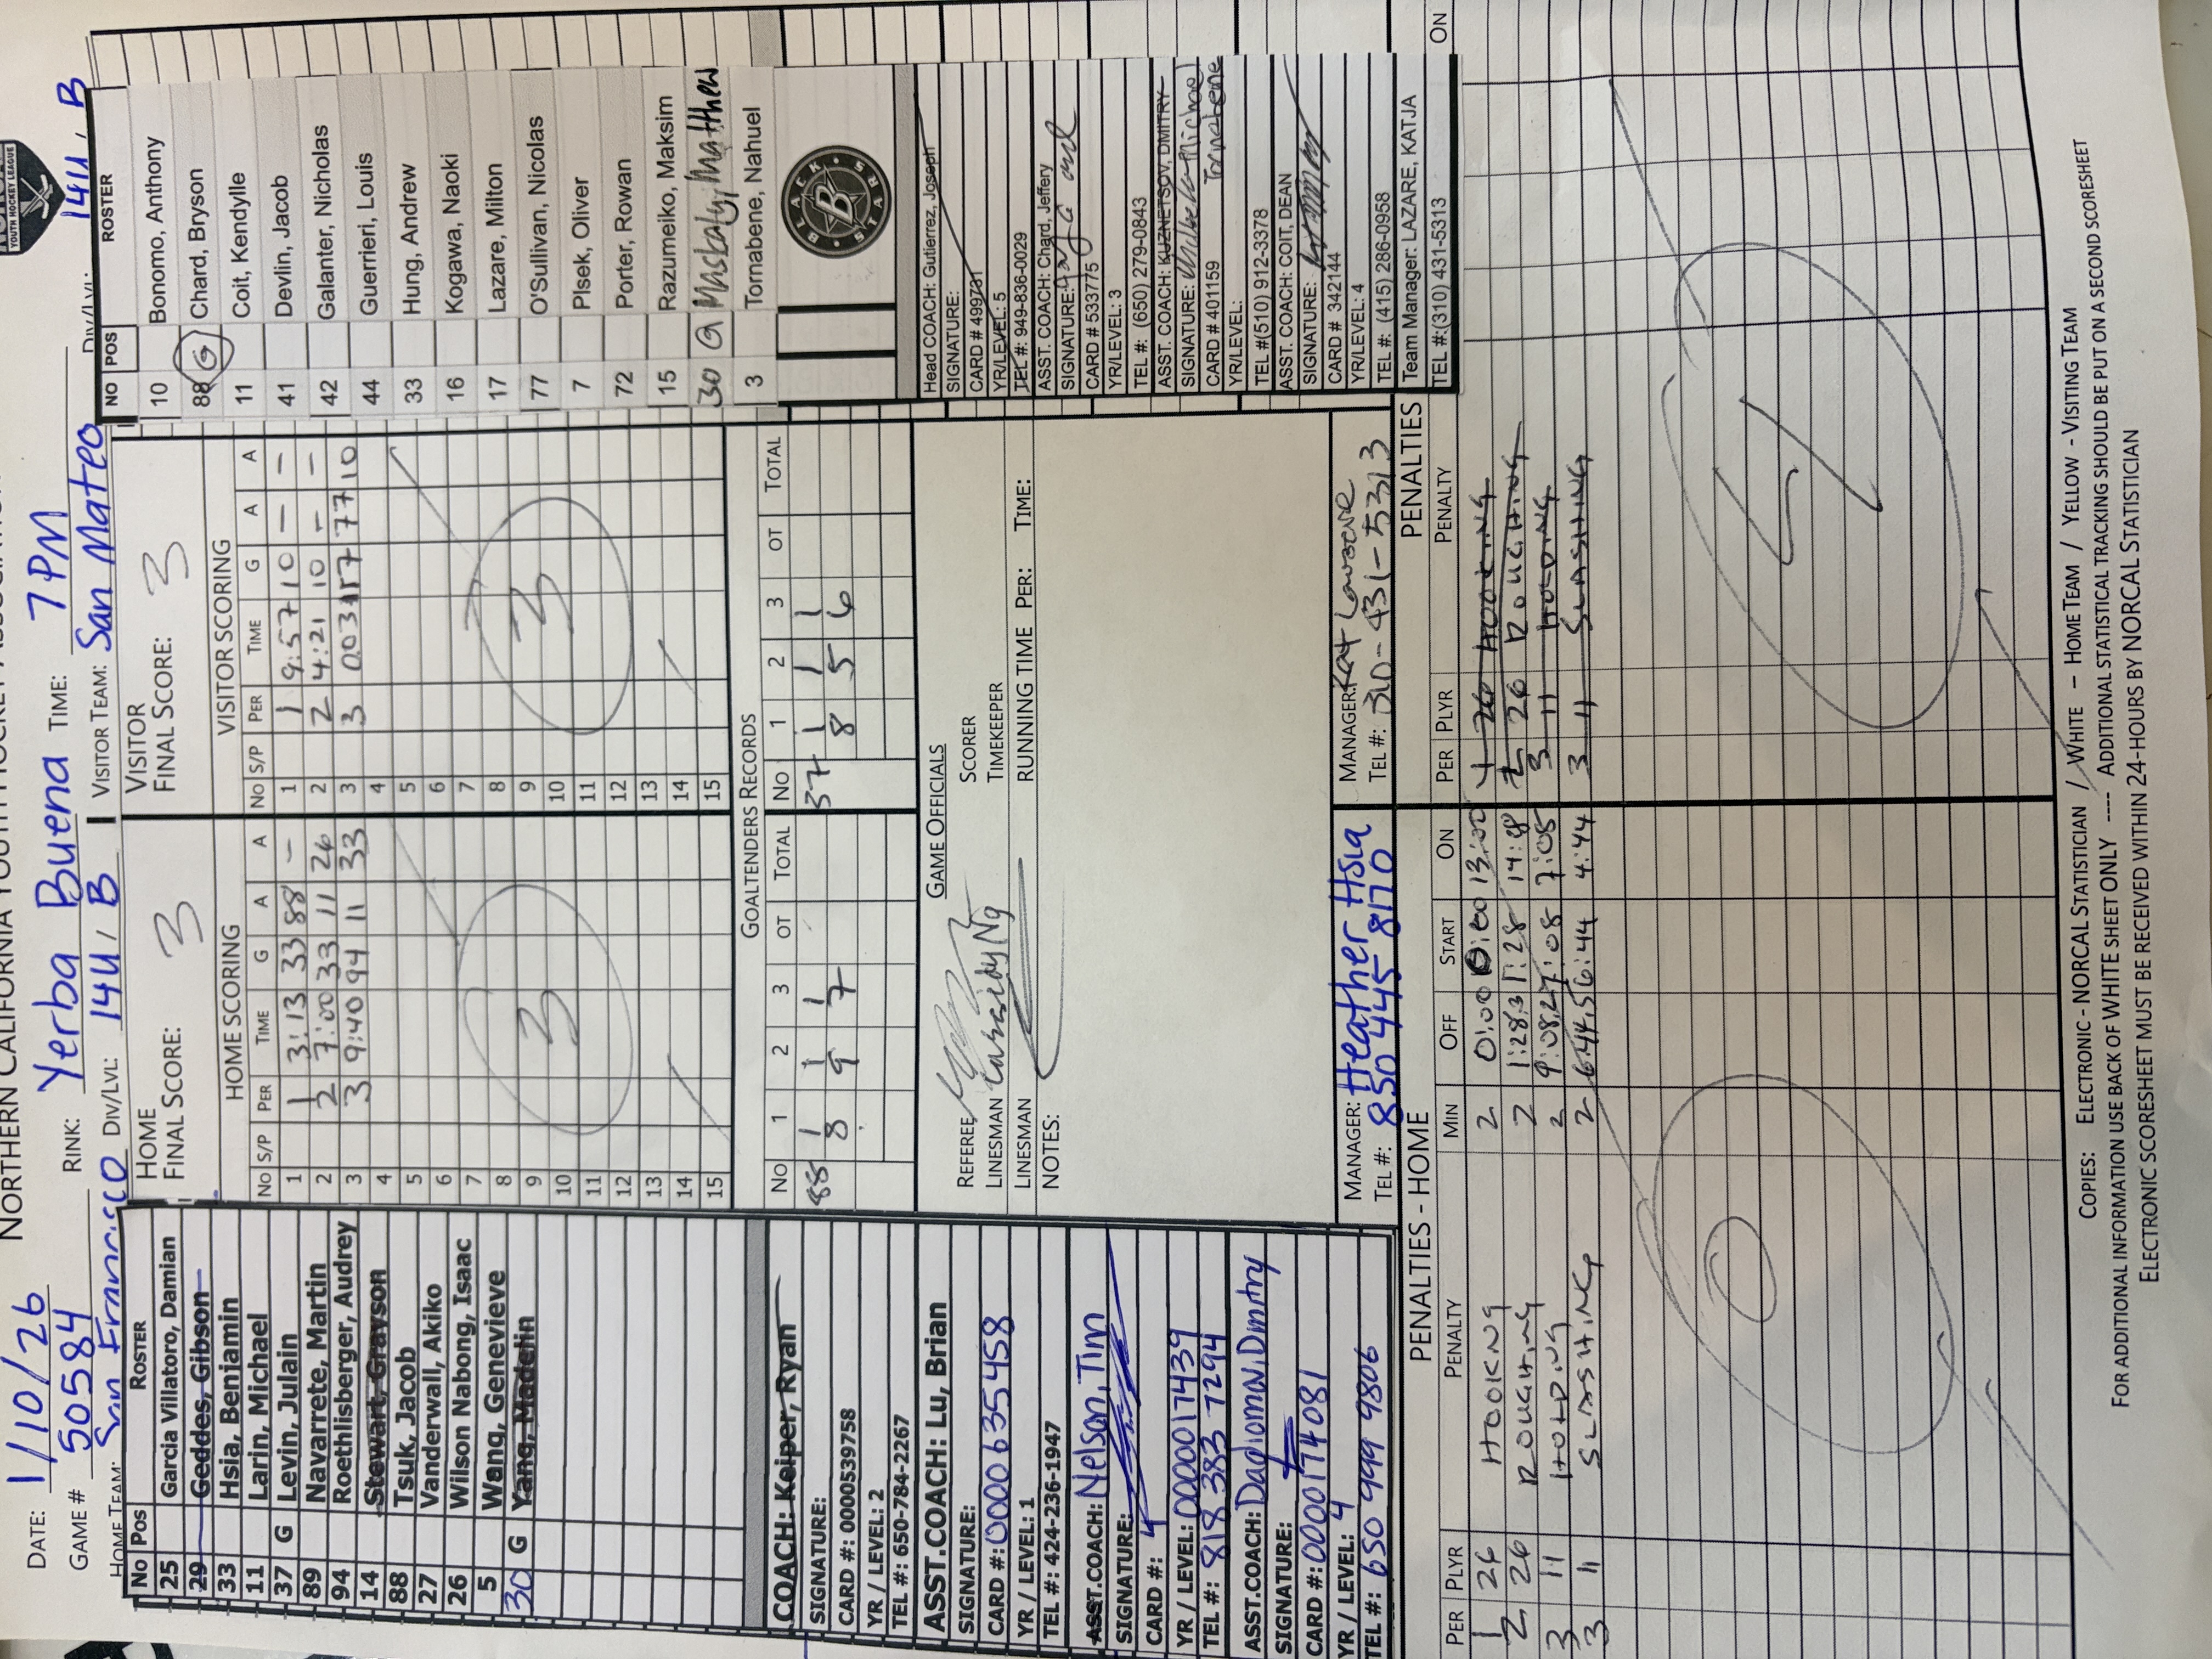 NORTHERN CALIFORNIA YOUTH HOCKEY ASSOCIATION
YOUTH HOCKEY LEAGUE
DATE: 1/10/26 RINK: Yerba Buena TIME: 7 PM
GAME # 50584
HOME TEAM: San Francisco DIV/LVL: 14U, B VISITOR TEAM: San Mateo DIV/LVL: 14U, B
No Pos ROSTER
25 Garcia Villatoro, Damian
29 Geddes, Gibson
33 Hsia, Benjamin
11 Larin, Michael
37 G Levin, Julain
89 Navarrete, Martin
94 Roethlisberger, Audrey
14 Stewart, Grayson
88 Tsuk, Jacob
27 Vanderwall, Akiko
26 Wilson Nabong, Isaac
5 Wang, Genevieve
30 G Yang, Madelin
COACH: Keiper, Ryan
SIGNATURE:
CARD #: 0000539758
YR / LEVEL: 2
TEL #: 650-784-2267
ASST.COACH: Lu, Brian
SIGNATURE:
CARD #: 0000635458
YR / LEVEL: 1
TEL #: 424-236-1947
ASST.COACH: Nelson, Tim
SIGNATURE:
CARD #: 4
YR / LEVEL: 000017439
TEL #: 818 383 7294
ASST.COACH: Dadiomov, Dmitry
SIGNATURE:
CARD #: 0000174081
YR / LEVEL: 4
TEL #: 650 999 9806
HOME
FINAL SCORE: 3
HOME SCORING
No S/P PER TIME G A A
1 1 3:13 33 88 —
2 2 7:00 33 11 26
3 3 9:40 94 11 33
4
5
6
7
8
9
10
11
12
13
14
15
3
VISITOR
FINAL SCORE: 3
VISITOR SCORING
No S/P PER TIME G A A
1 1 9:57 10 — —
2 2 4:21 10 — —
3 3 0:03 17 77 10
4
5
6
7
8
9
10
11
12
13
14
15
3
GOALTENDERS RECORDS
No 1 2 3 OT TOTAL No 1 2 3 OT TOTAL
88 1 1 1 37 1 1 1
8 9 7 8 5 6
GAME OFFICIALS
REFEREE SCORER
LINESMAN Cassidy Ng TIMEKEEPER
LINESMAN RUNNING TIME PER: TIME:
NOTES:
MANAGER: Heather Hsia
TEL #: 850 445 8170
MANAGER: Kat Lazare
TEL #: 310-431-5313
NO POS ROSTER
10 Bonomo, Anthony
88 G Chard, Bryson
11 Coit, Kendylle
41 Devlin, Jacob
42 Galanter, Nicholas
44 Guerrieri, Louis
33 Hung, Andrew
16 Kogawa, Naoki
17 Lazare, Milton
77 O'Sullivan, Nicolas
7 Plsek, Oliver
72 Porter, Rowan
15 Razumeiko, Maksim
30 G Matthew
3 Tornabene, Nahuel
BLACK STARS
B
Head COACH: Gutierrez, Joseph
SIGNATURE:
CARD # 499731
YR/LEVEL: 5
TEL #: 949-836-0029
ASST. COACH: Chard, Jeffery
SIGNATURE:
CARD # 533775
YR/LEVEL: 3
TEL #: (650) 279-0843
ASST. COACH: KUZNETSOV, DMITRY
SIGNATURE: Michael
CARD # 401159 Tornabene
YR/LEVEL:
TEL #(510) 912-3378
ASST. COACH: COIT, DEAN
SIGNATURE:
CARD # 342144
YR/LEVEL: 4
TEL #: (415) 286-0958
Team Manager: LAZARE, KATJA
TEL #:(310) 431-5313
PENALTIES - HOME
PER PLYR PENALTY MIN OFF START ON
1 26 HOOKING 2 0:00 13:00
2 26 ROUGHING 2 1:28 1:28 14:28
3 11 HOLDING 2 9:08 7:08 7:05
3 11 SLASHING 2 6:44 6:44 4:44
0
PENALTIES
PER PLYR PENALTY ON
1 26 HOOKING
2 26 ROUGHING
3 11 HOLDING
3 11 SLASHING
COPIES: ELECTRONIC - NORCAL STATISTICIAN / WHITE – HOME TEAM / YELLOW - VISITING TEAM
FOR ADDITIONAL INFORMATION USE BACK OF WHITE SHEET ONLY ---- ADDITIONAL STATISTICAL TRACKING SHOULD BE PUT ON A SECOND SCORESHEET
ELECTRONIC SCORESHEET MUST BE RECEIVED WITHIN 24-HOURS BY NORCAL STATISTICIAN